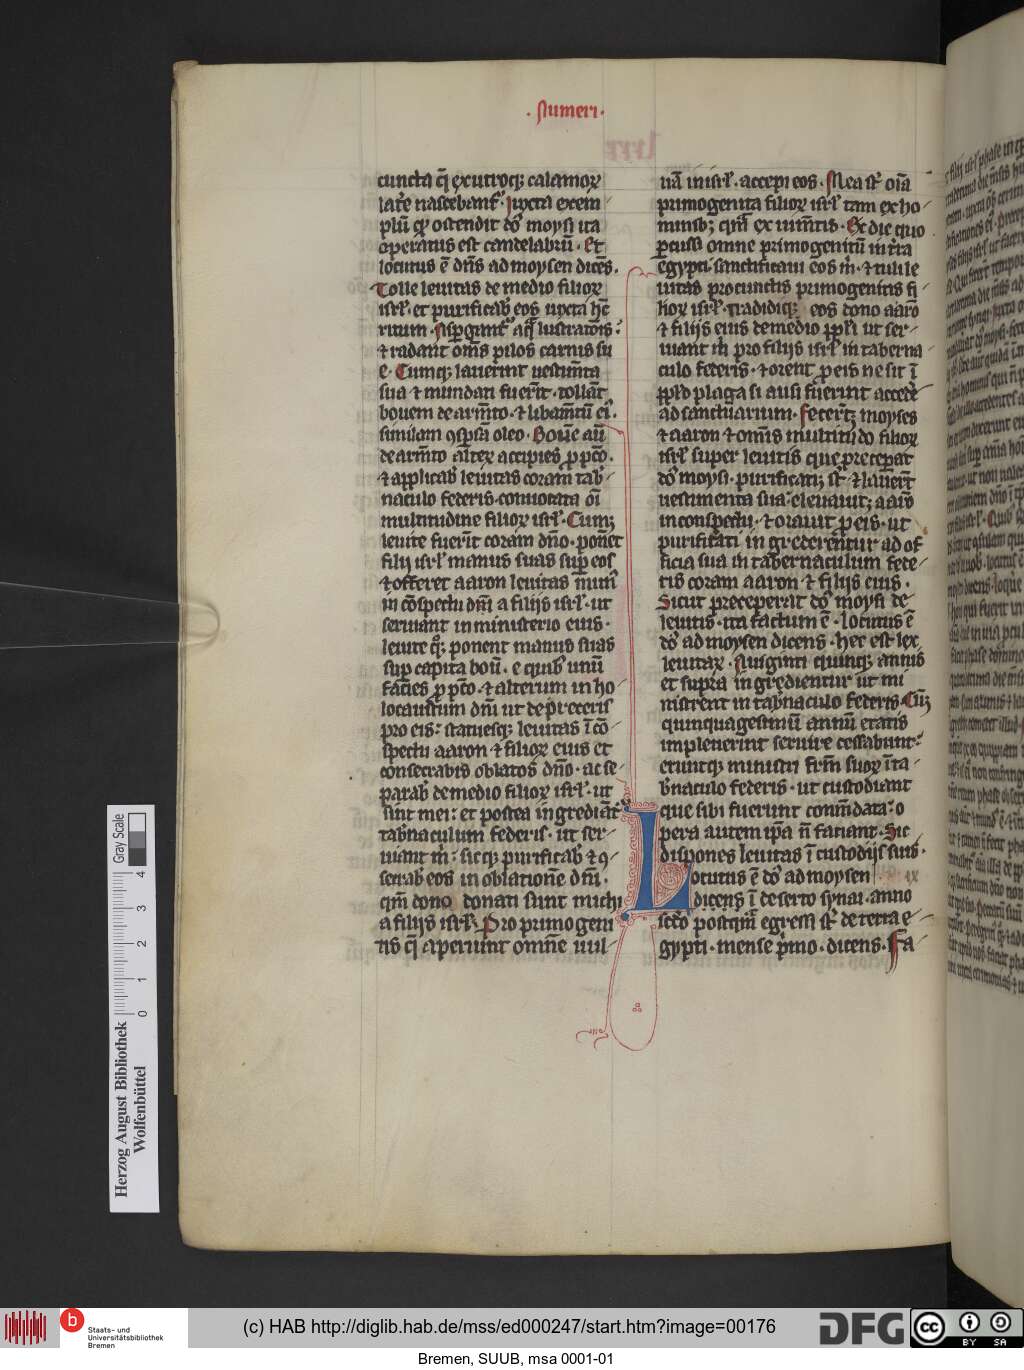 · Numeri ·
cuncta q̄ ex utroq; calamoꝝ
lat̄e nascebant᷑. Iuxta exem-
plū qd̓ ostendit dn̄s moysi ita
operatus est candelabrū. Et
locutus ē dn̄s ad moysen dicēs.
Tolle leuitas de medio filioꝝ
isrl̓. et purificab̓ eos iuxta hc̄
ritum. Asꝑgant᷑ aq̄ lustratōis.
⁊ radant om̄s pilos carnis su
e. Cumq; lauerint uestim̄ta
sua ⁊ mundati fuer̄t. tollāt
bouem de arm̄to. ⁊ libam̄tū ei᷒.
similam ꝯsꝑsā oleo. Bouē aū
de arm̄to alteꝝ accipies ꝓ pc̄co.
⁊ applicab̓ leuitas coram tab̓-
naculo federis. conuocata om̄i
multitudine filioꝝ isrl̓. Cumq;
leuite fuer̄t coram dn̄o. ponēt
filij isrl̓ manus suas suꝑ eos
⁊ offeret aaron leuitas mun᷒
in cōspectu dn̄i a filijs isrl̓. ut
seruiant in ministerio eius.
leuite qͦ; ponent manus suas
suꝑ capita boū. e quib᷒ unū
facies ꝓ pc̄co. ⁊ alterum in ho-
locaustum dn̄i ut depreceris
pro eis. statuesq; leuitas ī cō-
spectu aaron ⁊ filioꝝ eius et
consecrabis oblatos dn̄o. ac se-
parab̓ de medio filioꝝ isrl̓. ut
sint mei. et postea ingrediāt᷑
tab̓naculum federis. ut ser-
uiant m̄. sicq; purificab̓ ⁊ ꝯ-
secrab̓ eos in oblationē dn̄i.
qm̄ dono donati sunt michi
a filijs isrl̓. Pro primogeni
tis q̄ aperiunt omnē uul-
uā in isrl̓. accepi eos. Mea st̄ oīa
primogenita filioꝝ isrl̓ tam ex ho-
minib; qm̄ ex ium̄tis. Ex die quo
ꝑcussi omne primogenitū in t̄ra
egypti. sanctificaui eos m̄. ⁊ tuli le
uitas pro cunctis primogenitis fi-
lioꝝ isrl̓. Tradidiq; eos dono aarō
⁊ filijs eius de medio ppl̓i ut ser-
uiant m̄ pro filijs isrl̓ in taberna-
culo federis. ⁊ orent ꝓ eis ne sit ī
ppl̓o plaga si ausi fuerint accede
ad sanctuarium. Fecer̄tq; moyses
⁊ aaron ⁊ om̄is multitudo filioꝝ
isrl̓ super leuitis que preceperat
dn̄s moysi. purificatiq; st̄. ⁊ lauer̄t
uestimenta sua. eleuauitq; aarō
in conspectu. ⁊ orauit ꝓ eis. ut
purificati ingrederentur ad of-
ficia sua in tabernaculum fede-
ris coram aaron ⁊ filijs eius.
Sicut preceperat dn̄s moysi de
leuitis. ita factum ē. Locutus ē
dn̄s ad moysen dicens. hec est lex
leuitaꝝ. A uiginti quinq; annis
et supra ingredientur ut mi
nistrent in tab̓naculo federis. Cūq;
quinquagesimū annū etatis
impleuerint seruire cessabunt.
eruntq; ministri fr̄m suoꝝ ī ta-
b̓naculo federis. ut custodiant
que sibi fuerint commēdata. o
pera autem ip̄a n̄ faciant. Sic
dispones leuitas ī custodijs suis.
Locutus ē dn̄s ad moysen ix
dicens ī deserto synai. anno
sc̄do postqm̄ egressi st̄ de terra e-
gypti. mense p̄mo. dicens. Fa-
Gray Scale
0 1 2 3 4
Herzog August Bibliothek
Wolfenbüttel
b
Staats- und
Universitätsbibliothek
Bremen
(c) HAB http://diglib.hab.de/mss/ed000247/start.htm?image=00176
DFG
cc BY SA
Bremen, SUUB, msa 0001-01